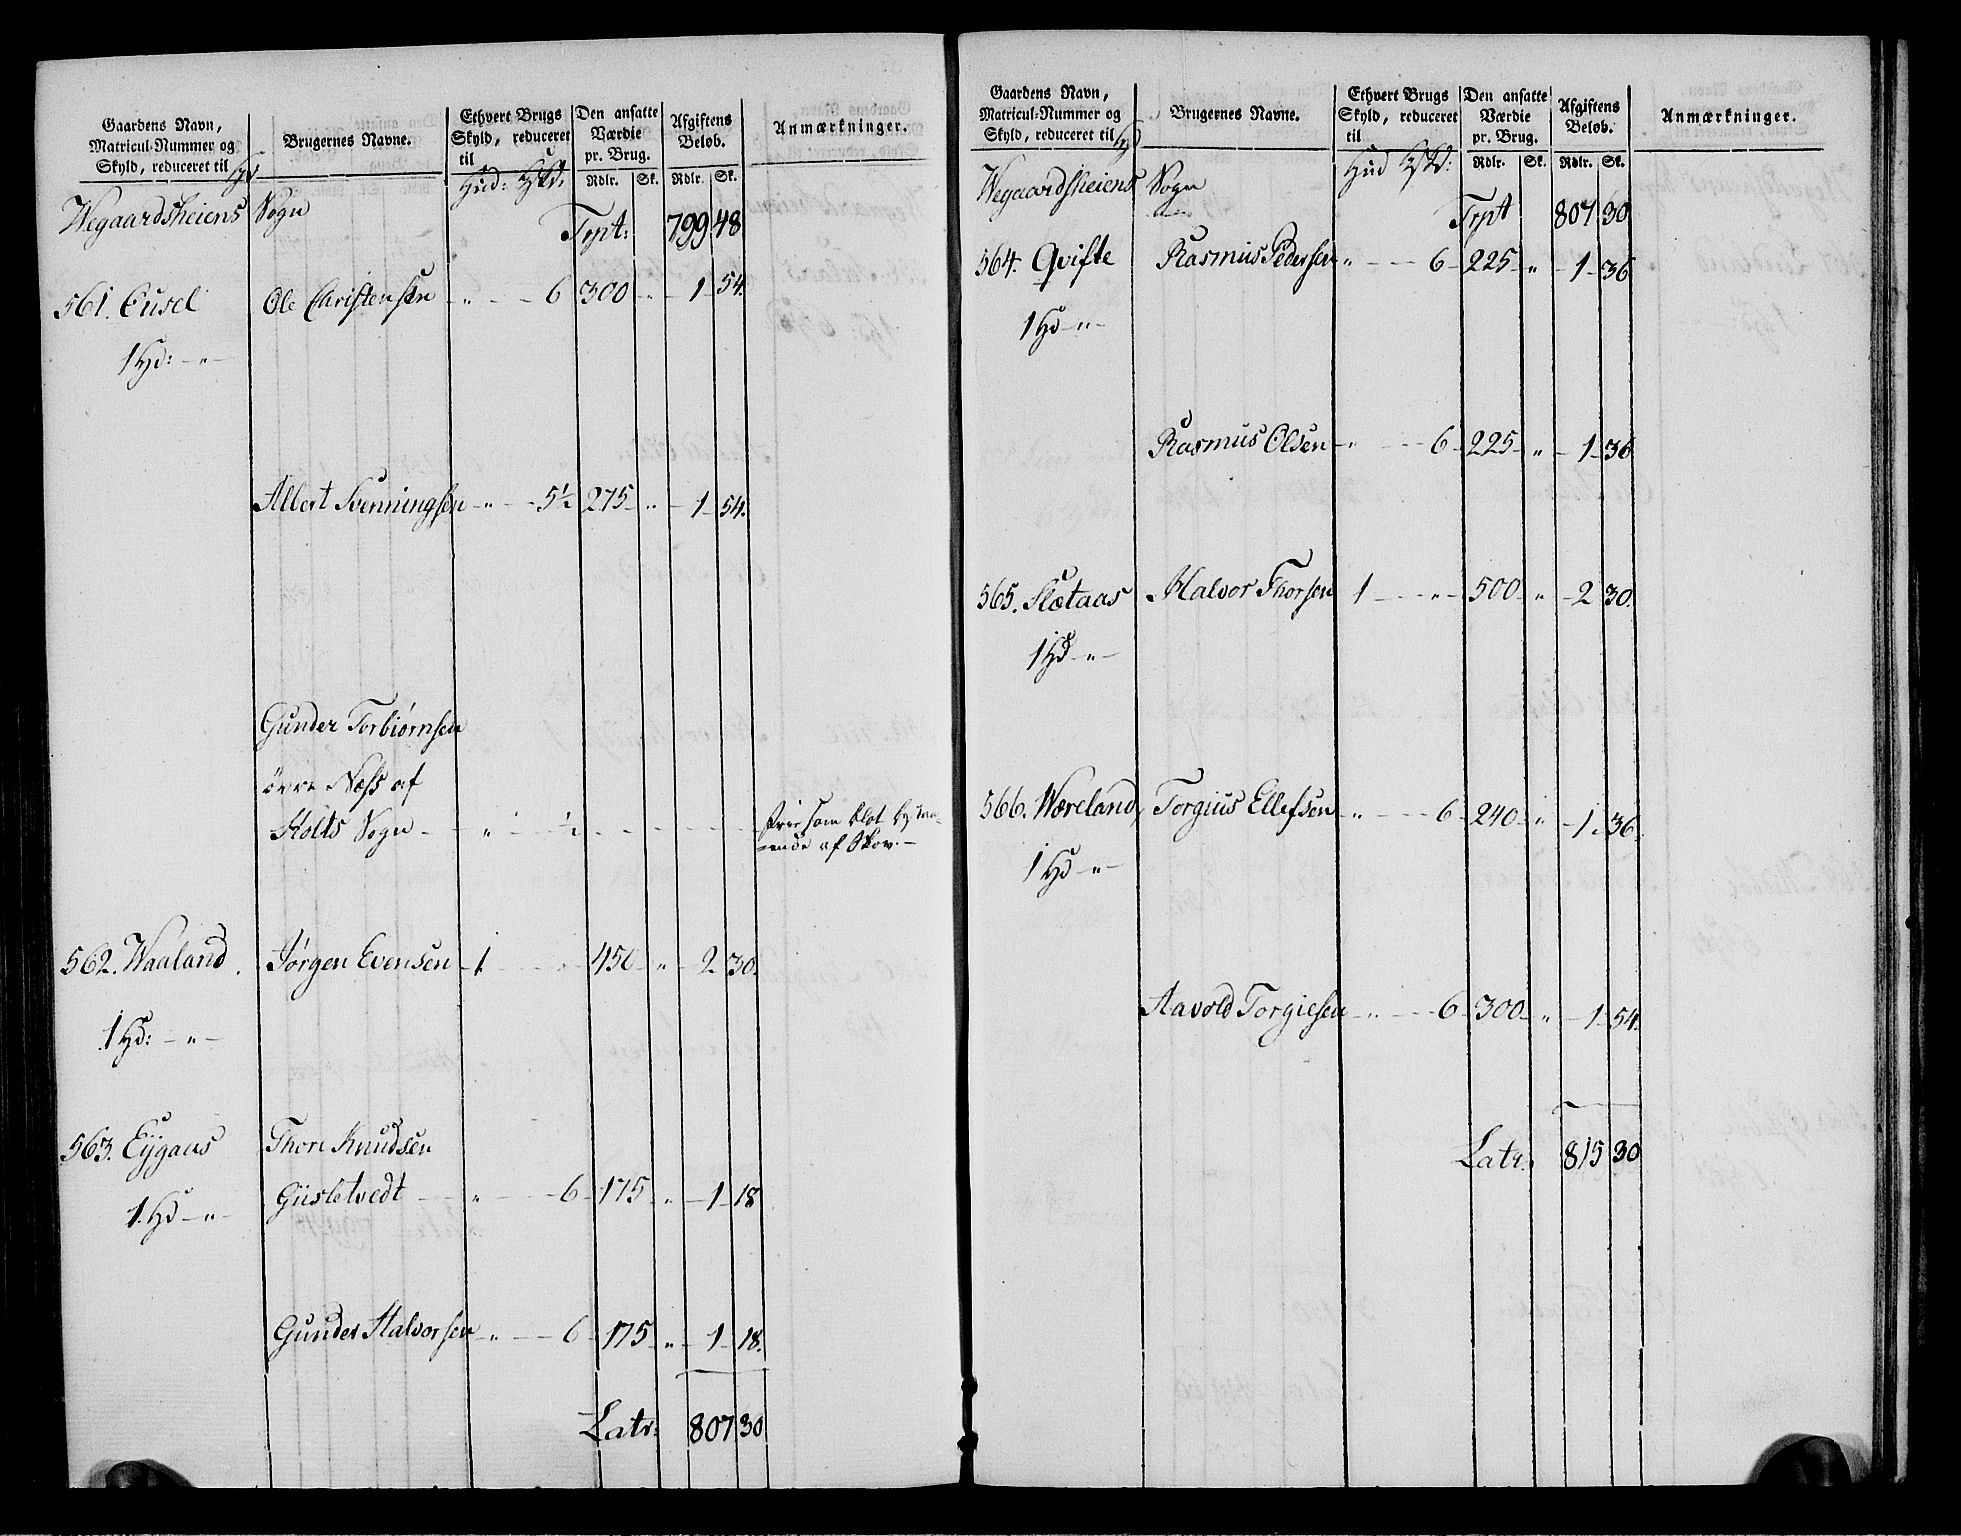 Gaardens Navn, Matricul-Nummer og Skyld, reduceret til | Brugernes Navne. | Ethvert Brugs Skyld, reduceret til | Den ansatte Værdie pr. Brug. | Afgiftens Beløb. | Anmærkninger.
Hud: | Rdlr. | Sk. | Rdlr. | Sk.
Wegaardsheiens Sogn
Trpt: 799 48
561. Eusel Ole Christensen " 6 300 " 1 54.
1 Hd: — " —
Albert Svenningsen " 5½ 275 " 1 54.
Gunder Torbiørnsen
øvre Næss af
Holts Sogn " ½ frie som blot be-
ende af Skov.
562. Waaland Jørgen Evensen 1 450 " 2 30.
1 Hd: — " —
563. Eÿgaas Thore Knudsen
Giisletvedt " 6 175 " 1 18
1. Hd — " —
Gunder Halvorsen " 6 175 " 1 18.
Latr: 807 30
Gaardens Navn, Matricul-Nummer og Skyld, reduceret til | Brugernes Navne. | Ethvert Brugs Skyld, reduceret til | Den ansatte Værdie pr. Brug. | Afgiftens Beløb. | Anmærkninger.
Hud | Rdlr. | Sk. | Rdlr. | Sk.
Wegaardsheiens Sogn
Trpt 807 30
564. Qvifte Rasmus Pedersen " 6 225 " 1 36
1 Hd — " —
Rasmus Olsen " 6 225 " 1 36
565. Slætaas Halvor Thorsen 1 " 500 " 2 30.
1 Hd — " —
566. Wæreland, Torgius Ellefsen " 6 240 " 1 36.
1 Hd — " —
Aavold Torgiesen " 6 300 " 1 54.
Latr. 815 30